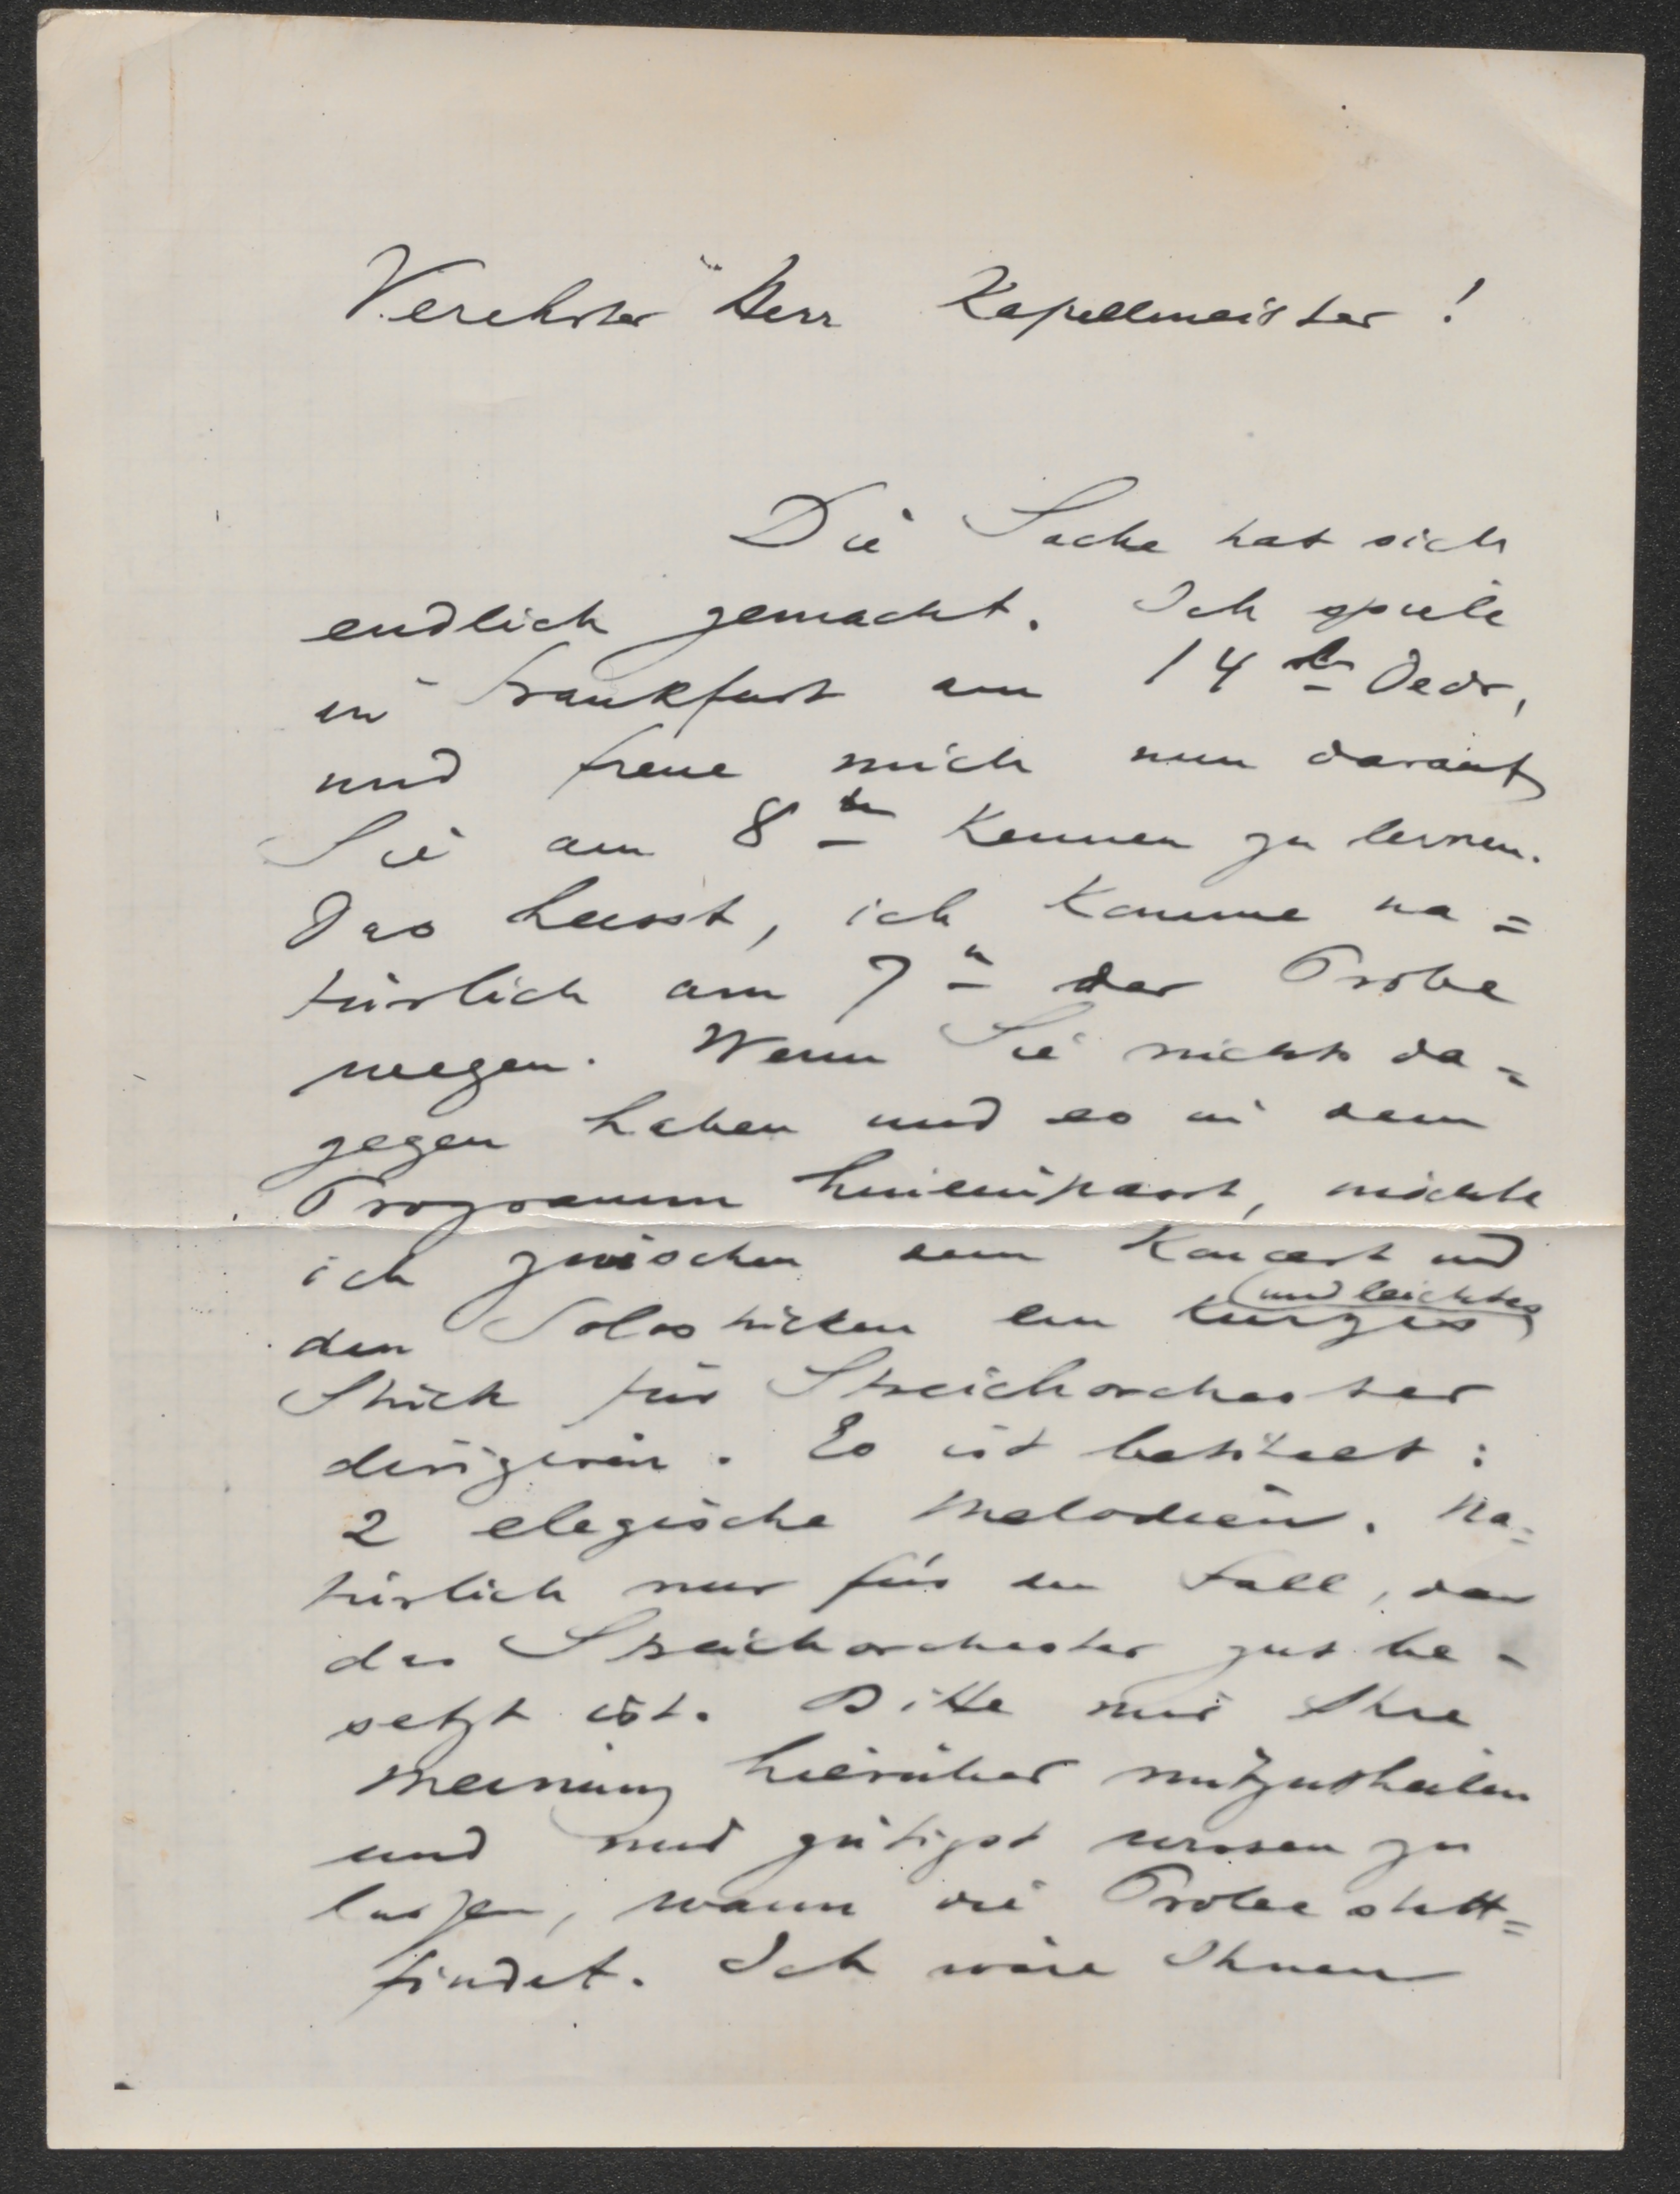 Verehrter Herr Kapellmeister!
Die Sache hat sich
endlich gemacht. Ich spiele
in Frankfurt am 14ten Decbr,
und freue mich nun darauf
Sie am 8ten kennen zu lernen.
Das heisst, ich komme na=
türlich am 7n der Probe
wegen. Wenn Sie nichts da=
gegen haben und es in dem
Programm hineinpasst, möchte
ich zwischen dem Koncert und
den Solostücken ein kurzes (und leichtes)
Stück für Streichorchester
dirigiren. Es ist betitelt:
2 elegische Melodien. Na=
türlich nur für den Fall, dass
das Streichorchester gut be-
setzt ist. Bitte mir Ihre
Meinung hierüber mitzutheilen
und mir gütigst wissen zu
lassen, wann die Probe statt=
findet. Ich wäre Ihnen